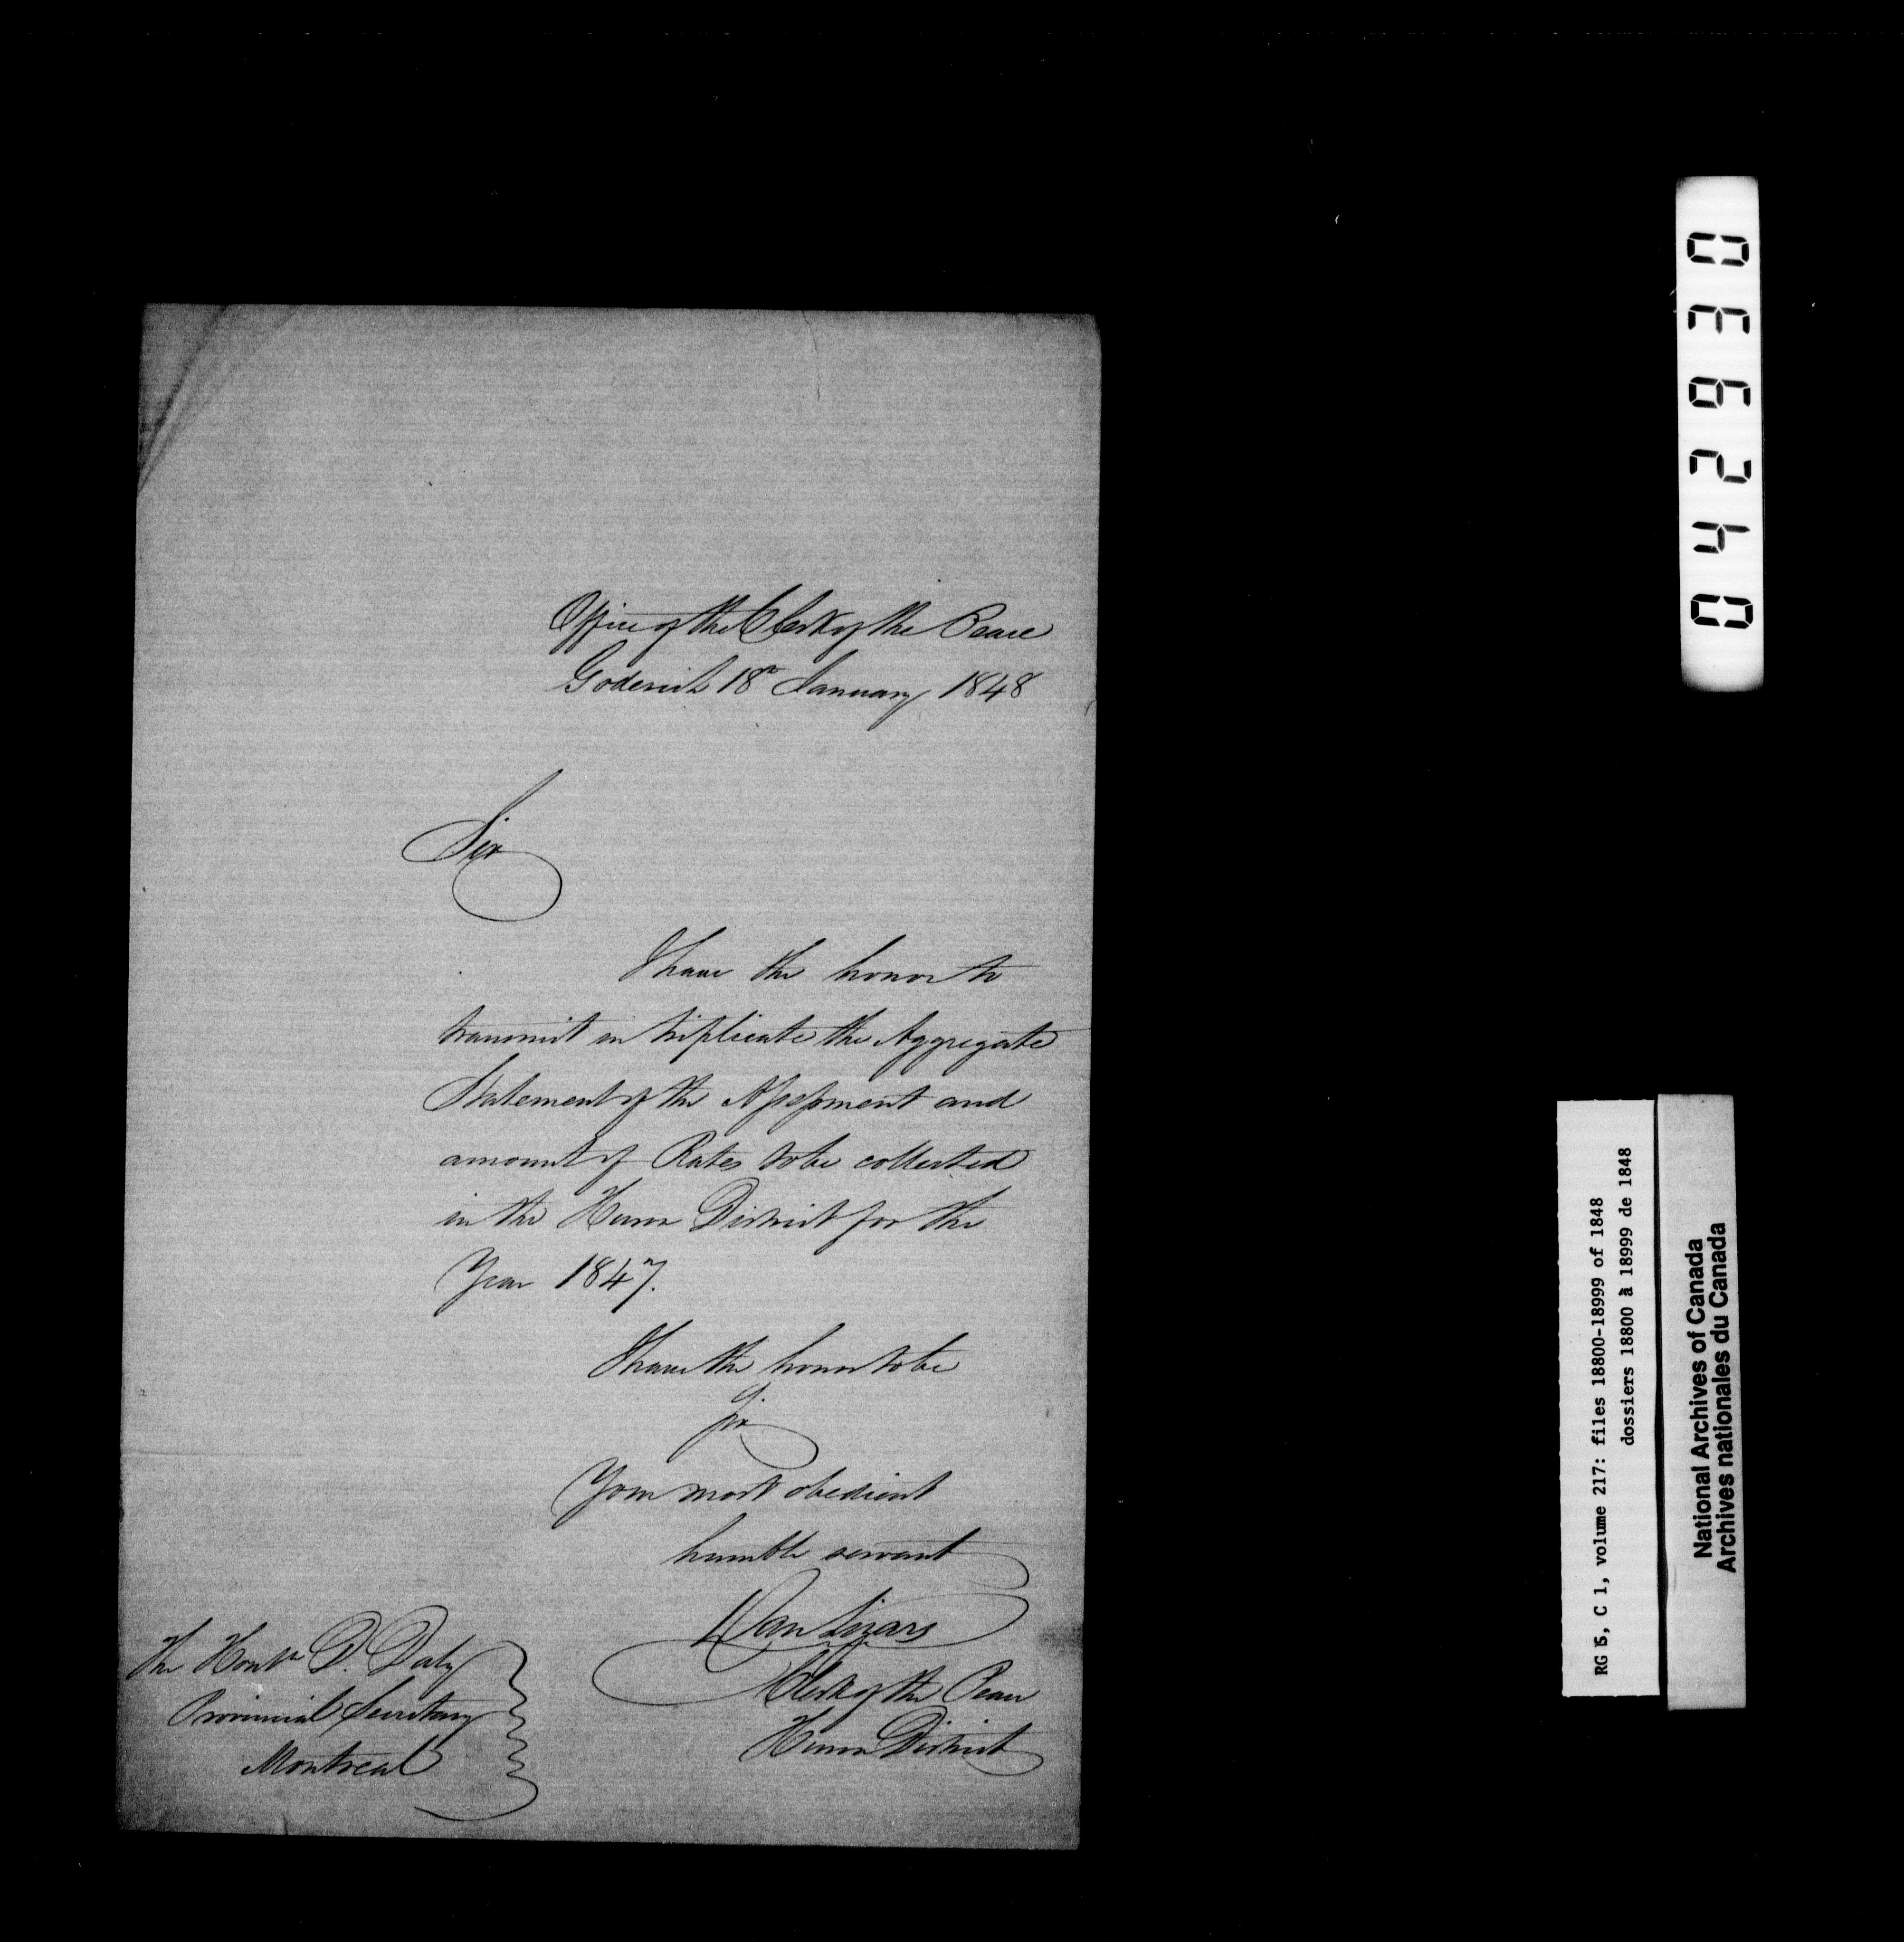 Office of the Clerk of the Peace
Goderich 18th January 1848
Sir
I have the honor to
transmit in triplicate the Aggregate
Statement of the Assessment and
amount of Rates to be collected
in the Huron District for the
Year 1847.
I have the honor to be
Sir
Your most obedient
humble servant
Dan Lizars
Clerk of the Peace
Huron District
The Honble D. Daly
Provincial Secretary
Montreal
042630
RG 5, C 1, volume 217: files 18800-18999 of 1848
dossiers 18800 à 18999 de 1848
National Archives of Canada
Archives nationales du Canada